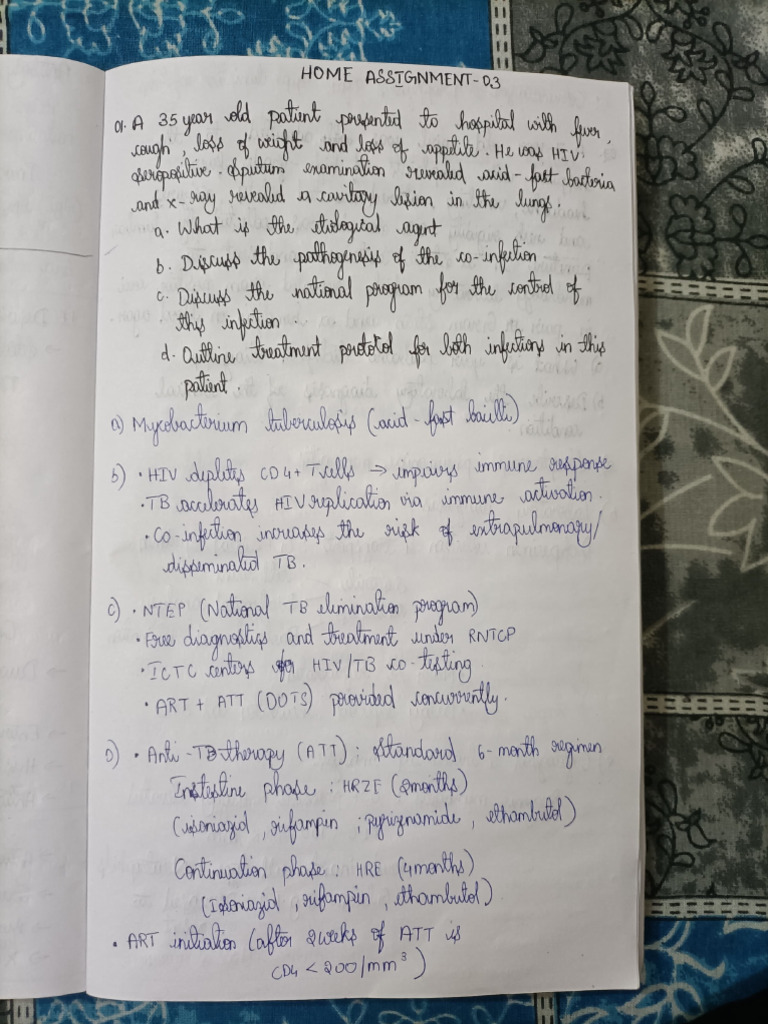 HOME ASSIGNMENT-03
Q1. A 35 year old patient presented to hospital with fever,
cough, loss of weight and loss of appetite. He was HIV
seropositive. Sputum examination revealed acid-fast bacteria
and x-ray revealed a cavitary lesion in the lungs.
a. What is the etiological agent
b. Discuss the pathogenesis of the co-infection
c. Discuss the national program for the control of
this infection
d. Outline treatment protocol for both infections in this
patient.
a) Mycobacterium tuberculosis (acid-fast bacilli)
b) • HIV depletes CD4+ T cells → impairs immune response
• TB accelerates HIV replication via immune activation.
• Co-infection increases the risk of extrapulmonary/
disseminated TB.
C) • NTEP (National TB elimination program)
• Free diagnostics and treatment under RNTCP
• ICTC centers for HIV/TB co-testing.
• ART + ATT (DOTS) provided concurrently.
D) • Anti-TB therapy (ATT): Standard 6-month regimen
Instestine phase: HRZE (2months)
(isoniazid, rifampin, pyriznamide, ethambutol)
Continuation phase: HRE (4months)
(Isoniazid, rifampin, ethambutol)
• ART initiation (after 2weeks of ATT is
CD4 < 200/mm³)